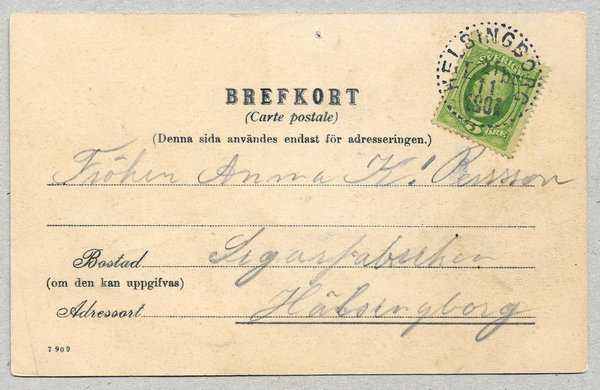 HELSINGBORG
11
SVERIGE
5 ÖRE
BREFKORT
(Carte postale)
(Denna sida användes endast för adresseringen.)
Fröken Anna K! Persson
Bostad
(om den kan uppgifvas)
Adressort Hälsingborg
7909